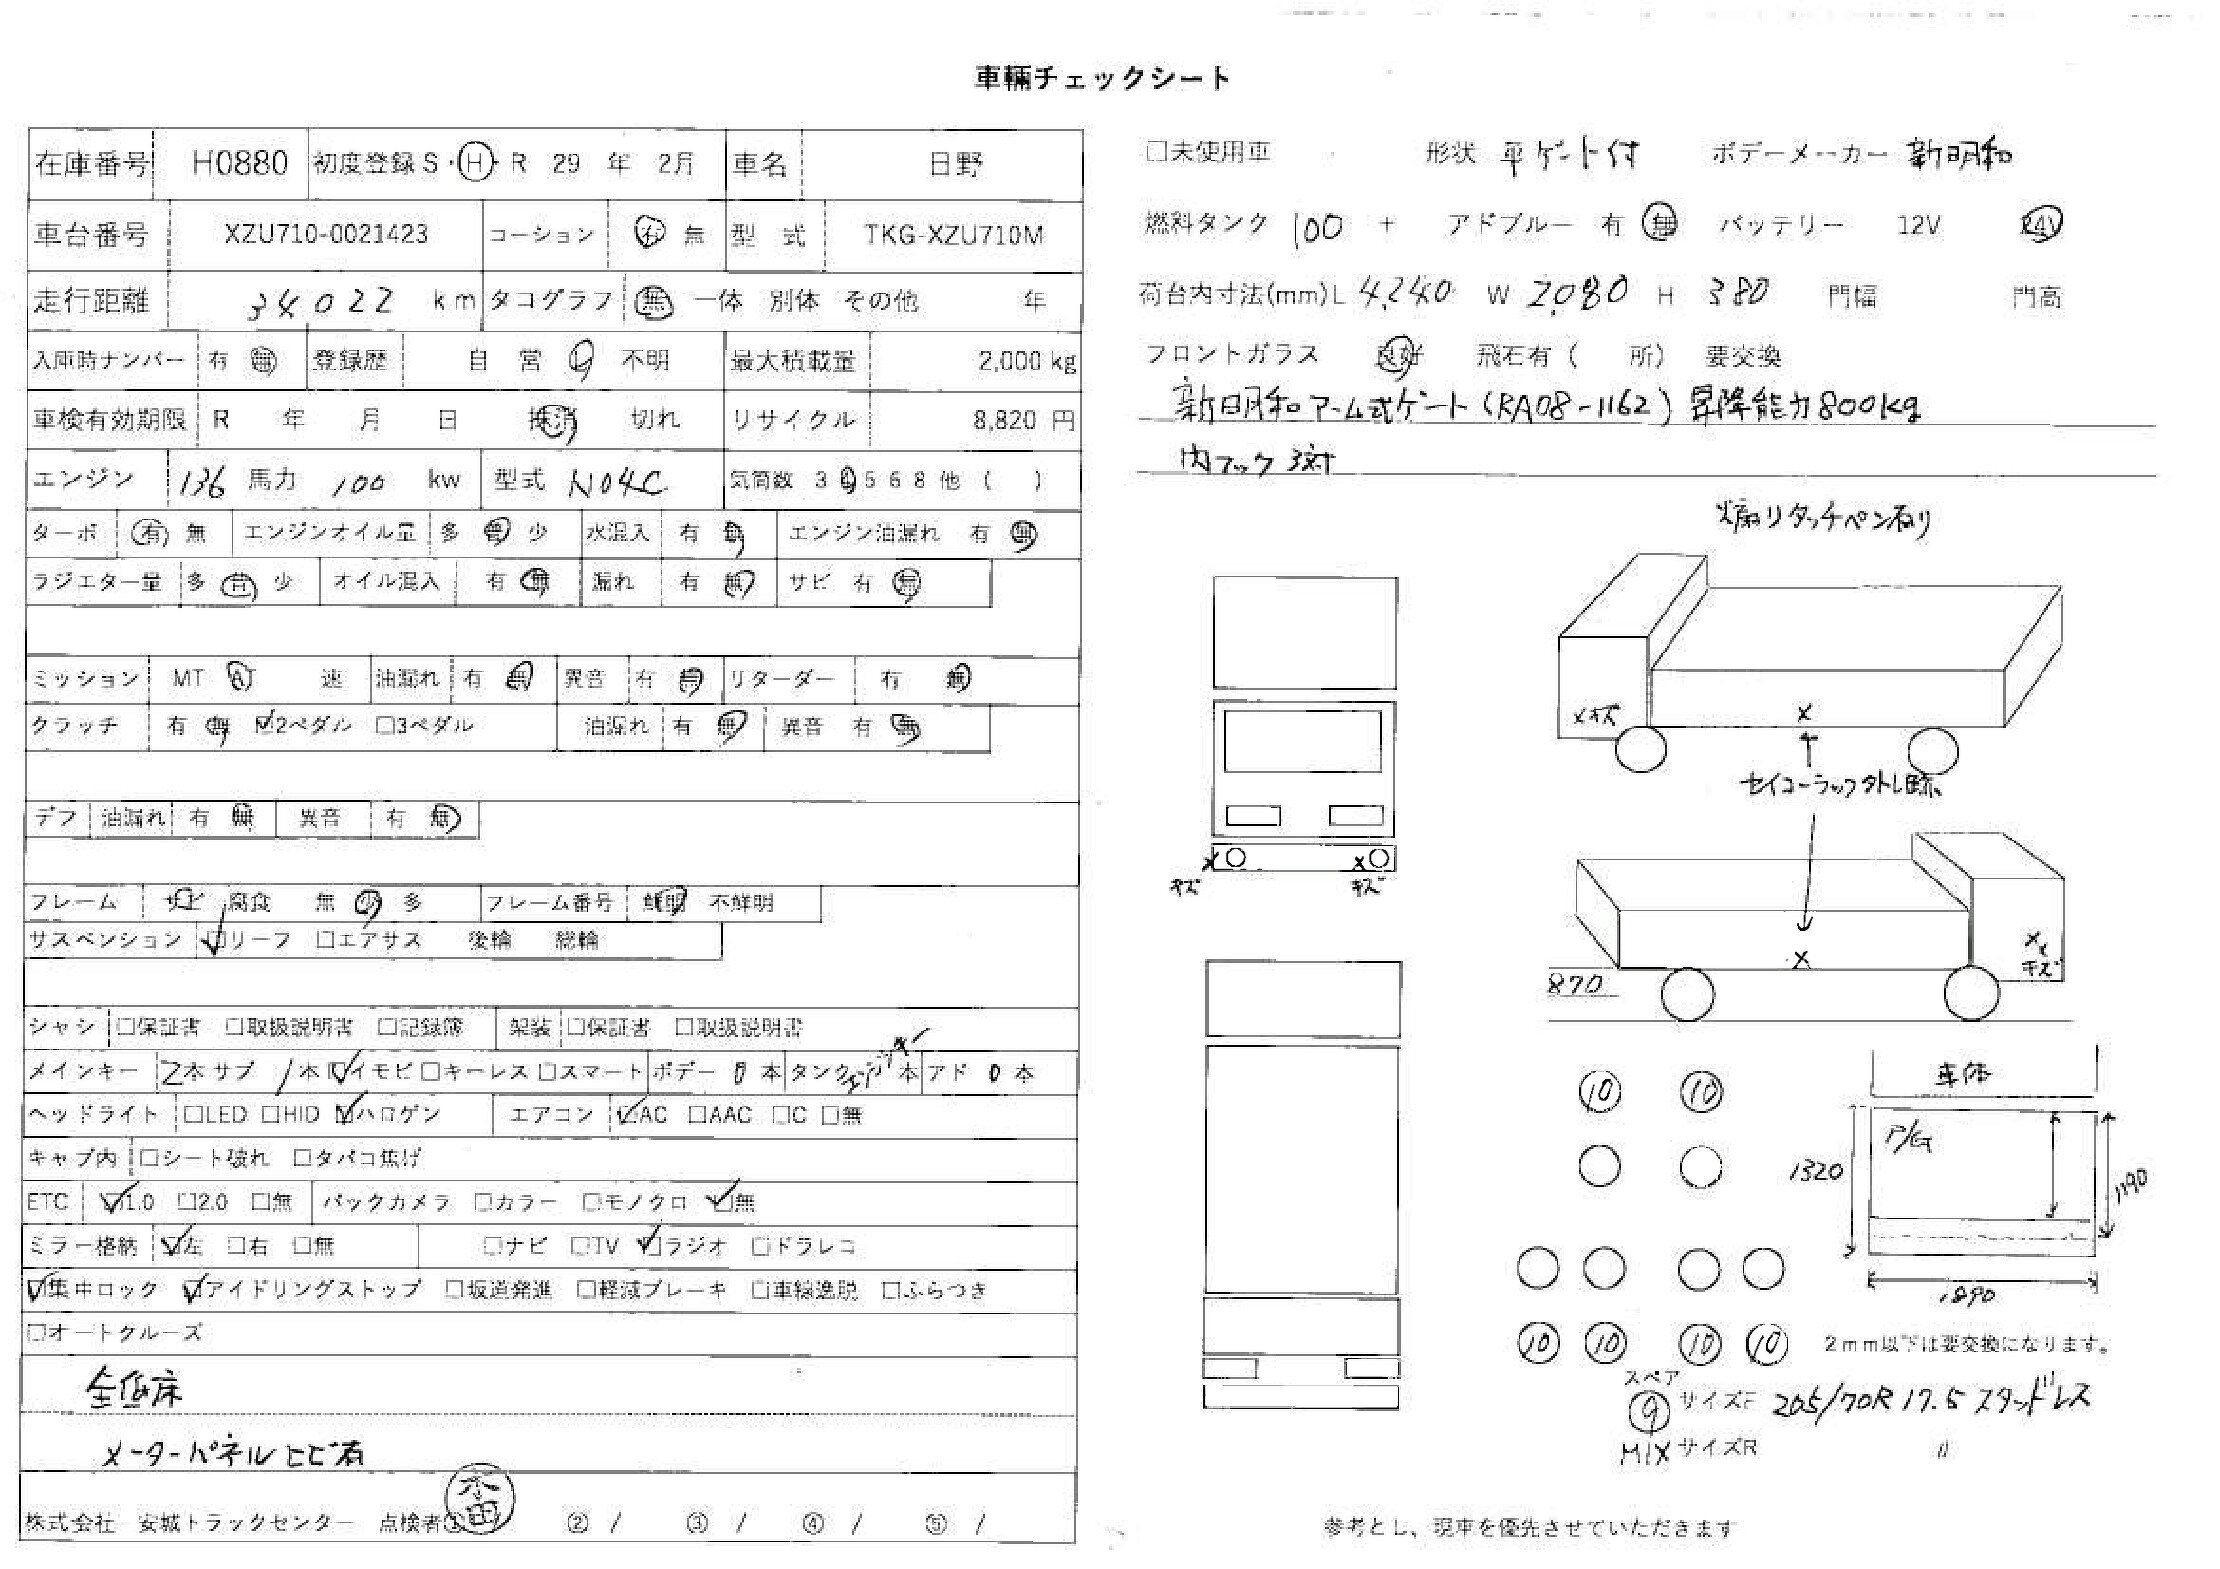 車輛チェックシート
在庫番号 H0880 初度登録 S・H・R 29 年 2月 車名 日野
車台番号 XZU710-0021423 コーション 有 無 型 式 TKG-XZU710M
走行距離 34022 km タコグラフ 無 一体 別体 その他 年
入庫時ナンバー 有 無 登録歴 自 営 不明 最大積載量 2,000 kg
車検有効期限 R 年 月 日 抹消 切れ リサイクル 8,820 円
エンジン 136 馬力 100 kw 型式 N04C 気筒数 3 4 5 6 8 他 ( )
ターボ 有 無 エンジンオイル量 多 普 少 水混入 有 無 エンジン油漏れ 有 無
ラジエター量 多 普 少 オイル混入 有 無 漏れ 有 無 サビ 有 無
ミッション MT AT 速 油漏れ 有 無 異音 有 無 リターダー 有 無
クラッチ 有 無 ☑2ペダル □3ペダル 油漏れ 有 無 異音 有 無
デフ 油漏れ 有 無 異音 有 無
フレーム サビ 腐食 無 少 多 フレーム番号 鮮明 不鮮明
サスペンション ☑リーフ □エアサス 後輪 総輪
シャシ □保証書 □取扱説明書 □記録簿 架装 □保証書 □取扱説明書
メインキー 2本 サブ 1本 ☑イモビ □キーレス □スマート ボデー 0 本 タンク エンジンキー 本 アド 0 本
ヘッドライト □LED □HID ☑ハロゲン エアコン ☑AC □AAC □C □無
キャブ内 □シート破れ □タバコ焦げ
ETC ☑1.0 □2.0 □無 バックカメラ □カラー □モノクロ ☑無
ミラー格納 ☑左 □右 □無 □ナビ □TV ☑ラジオ □ドラレコ
☑集中ロック ☑アイドリングストップ □坂道発進 □軽減ブレーキ □車線逸脱 □ふらつき
□オートクルーズ
全低床
メーターパネルヒビ有
株式会社 安城トラックセンター 点検者① 本田 ② / ③ / ④ / ⑤ /
□未使用車 形状 平ゲート付 ボデーメーカー 新明和
燃料タンク 100 + アドブルー 有 無 バッテリー 12V 24V
荷台内寸法(mm) L 4,240 W 2,080 H 380 門幅 門高
フロントガラス 良好 飛石有 ( 所) 要交換
新明和アーム式ゲート (RA08-1162) 昇降能力800kg
内フック 3対
煽りタッチペン有り
×キズ ×
セイコーラック外し跡
× ×
キズ キズ
×
××
キズ
870
10 10
車体
P/G
1320 1190
1890
10 10 10 10 2mm以下は要交換になります。
スペア
9 サイズF 205/70R 17.5 スタッドレス
MIX サイズR 〃
参考とし、現車を優先させていただきます